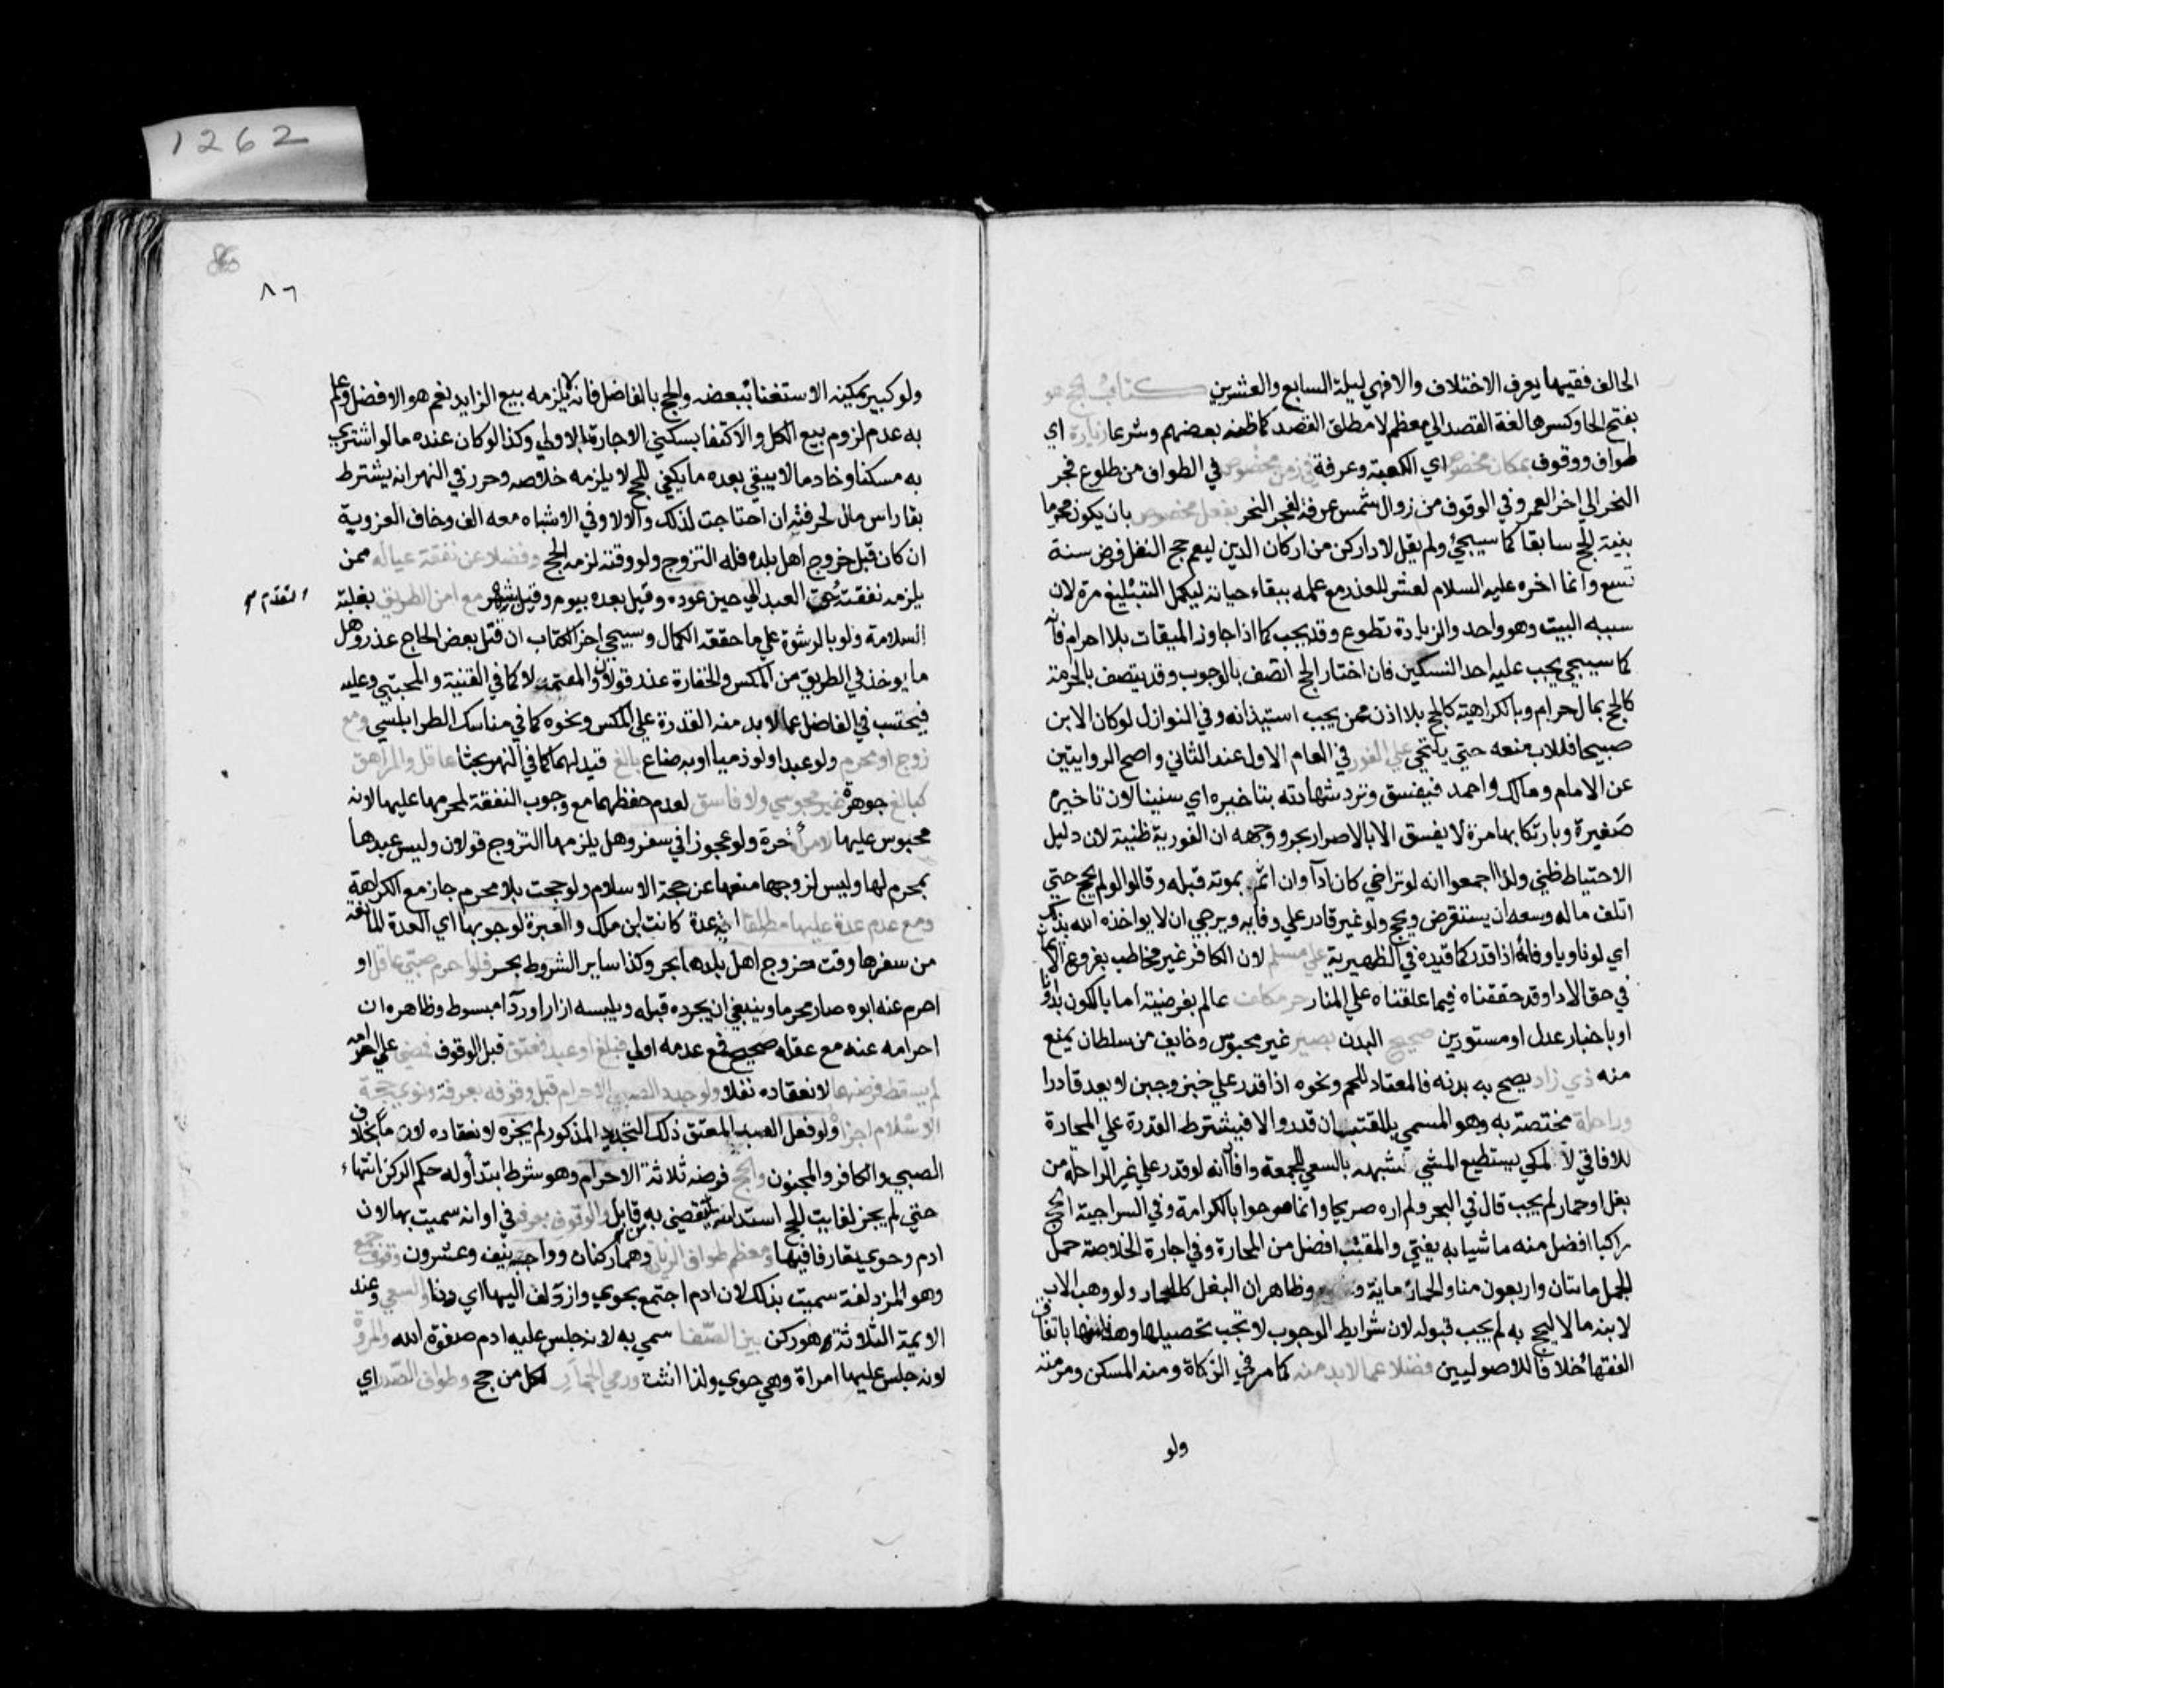 1262
الحالف فقيها يعرف الاختلاف والا فهي ليلة السابع والعشرين كتاب الحج هو
بفتح الحا وكسرها لغة القصد الي معظم لا مطلق القصد كما ظنه بعضهم وشرعا زيارة اي
طواف ووقوف بمكان مخصوص اي الكعبة وعرفة في زمن مخصوص في الطواف من طلوع فجر
النحر الي اخر العمر وفي الوقوف من زوال شمس عرفة لفجر النحر بفعل مخصوص بان يكون محرما
بنية الحج سابقا كما سيجئ ولم يقل لادا ركن من اركان الدين ليعم حج النفل فرض سنة
تسع وانما اخره عليه السلام لعشر للعذر مع علمه ببقاء حياته ليكمل التبليغ مرة لان
سببه البيت وهو واحد والزيادة تطوع وقد يجب كما اذا جاوز الميقات بلا احرام فانه
كما سيجي يجب عليه احد النسكين فان اختار الحج اتصف بالوجوب وقد يتصف بالحرمة
كالحج بمال حرام وبالكراهية كالحج بلا اذن ممن يجب استيذانه وفي النوازل لو كان الابن
صبيحا فللاب منعه حتي يلتحي علي الفور في العام الاول عند الثاني واصح الروايتين
عن الامام ومالك واحمد فيفسق وترد شهادته بتاخيره اي سنينا لان تاخيره
صغيرة وبارتكابها مرة لا يفسق الا بالاصرار بحر ووجهه ان الفورية ظنية لان دليل
الاحتياط ظني ولذا اجمعوا انه لو تراخي كان ادآ وان اثم بموته قبله وقالوا لو لم يحج حتي
اتلف ماله وسعه ان يستقرض ويحج ولو غير قادر علي وفايه ويرجي ان لا يواخذه الله بذلك
اي لو ناويا وفائه اذا قدر كما قيده في الظهيرية علي مسلم لان الكافر غير مخاطب بفروع الايمان
في حق الادا وقد حققناه فيما علقناه علي المنار حر مكلف عالم بفرضيته اما بالكون بدارنا
او باخبار عدل او مستورين صحيح البدن بصير غير محبوس وخايف من سلطان يمنع
منه ذي زاد يصح به بدنه فالمعتاد للحم ونحوه اذا قدر علي خبز وجبن لا يعد قادرا
وراحلة مختصة به وهو المسمي بالمقتب ان قدر والا فيشترط القدرة علي المحارة
للافاقي لا لمكي يستطيع المشي لشبهه بالسعي للجمعة وافاآنه لو قدر علي غير الراحلة من
بغل او حمار لم يجب قال في البحر ولم اره صريحا وانما صرحوا بالكرامة وفي السراجية الحج
راكبا افضل منه ماشيا به يفتي والمقتب افضل من المحارة وفي اجارة الخلاصة حمل
الجمل ماتان واربعون منا والحمار ماية وظاهر ان البغل كالحمار ولو وهب الاب
لابنه مالا ليحج به لم يجب قبوله لان شرايط الوجوب لا تجب تحصيلها وهذا منها باتفاق
الفقها خلافا للاصوليين فضلا عما لا بد منه كما مر في الزكاة ومنه المسكن ومرمته
ولو
٨٦
ولو كبير يمكنه الاستغنا ببعضه والحج بالفاضل فانه لا يلزمه بيع الزايد نعم هو الافضل وعلم
به عدم لزوم بيع الكل والاكتفا بسكني الاجارة بالاولي وكذا لو كان عنده ما لو اشتري
به مسكنا وخادما لا يبقي بعده ما يكفي للحج لا يلزمه خلاصه وحرر في النهر انه يشترط
بقا راس مال لحرفته ان احتاجت لذلك والا لا وفي الاشباه معه الف وخاف العزوبة
ان كان قبل خروج اهل بلده فله التزوج ولو وقته لزمه الحج وفضلا عن نفقة عياله ممن
يلزمه نفقته العبد الي حين عوده وقيل بعده بيوم وقيل بشهر مع امن الطريق بغلبة
السلامة ولو بالرشوة علي ما حققه الكمال وسيجي اخر الكتاب ان قتل بعض الحاج عذر وهل
ما يوخذ في الطريق من المكس والخفارة عذر قولان والمعتمد لا كما في القنية والمجتبي وعليه
فيحتسب في الفاضل عما لا بد منه القدرة علي المكس ونحوه كما في مناسك الطرابلسي ومع
زوج او محرم ولو عبدا او ذميا او برضاع بالغ قيد لهما كما في النهر بحثا عاقل والمراهق
كبالغ جوهرة غير مجوسي ولا فاسق لعدم حفظهما مع وجوب النفقة لمحرمها عليها لانه
محبوس عليها لامرأة حرة ولو عجوزا في سفر وهل يلزمها التزوج قولان وليس عبدها
بمحرم لها وليس لزوجها منعها عن حجة الاسلام ولو حجت بلا محرم جاز مع الكراهة
ومع عدم عدة عليها مطلقا اية عدة كانت ابن ملك والعبرة لوجوبها اي العدة المانعة
من سفرها وقت خروج اهل بلدها بحر وكذا ساير الشروط بحر فلو احرم صبي عاقل او
احرم عنه ابوه صار محرما وينبغي ان يجرده قبله ويلبسه ازارا وردآ مبسوط وظاهره ان
احرامه عنه مع عقله صحيح فمع عدمه اولي فبلغ او عبد فعتق قبل الوقوف فمضي علي احرامه
لم يسقط فرضهما لانعقاده نفلا ولو جدد الصبي الاحرام قبل وقوفه بعرفة ونوي حجة
الاسلام اجزأه ولو فعل العبد المعتق ذلك التجديد المذكور لم يجزه لانعقاده لازما بخلاف
الصبي والكافر والمجنون والحج فرضه ثلاثة الاحرام وهو شرط ابتدآ وله حكم الركن انتهاء
حتي لم يجز لفايت الحج استدامته ليقضي به من قابل والوقوف بعرفة في اوانه سميت به لان
ادم وحوي تعارفا فيها ومعظم طواف الزيارة وهما ركنان وواجبه نيف وعشرون وقوف جمع
وهو المزدلفة سميت بذلك لان ادم اجتمع بحوي وازدلف اليها اي دنا والسعي وعند
الايمة الثلاثة هو ركن بين الصفا سمي به لانه جلس عليه ادم صفوة الله والمروة
لانه جلس عليها امراة وهي حوي ولذا انثت ورمي الجمار لكل من حج وطواف الصدر اي